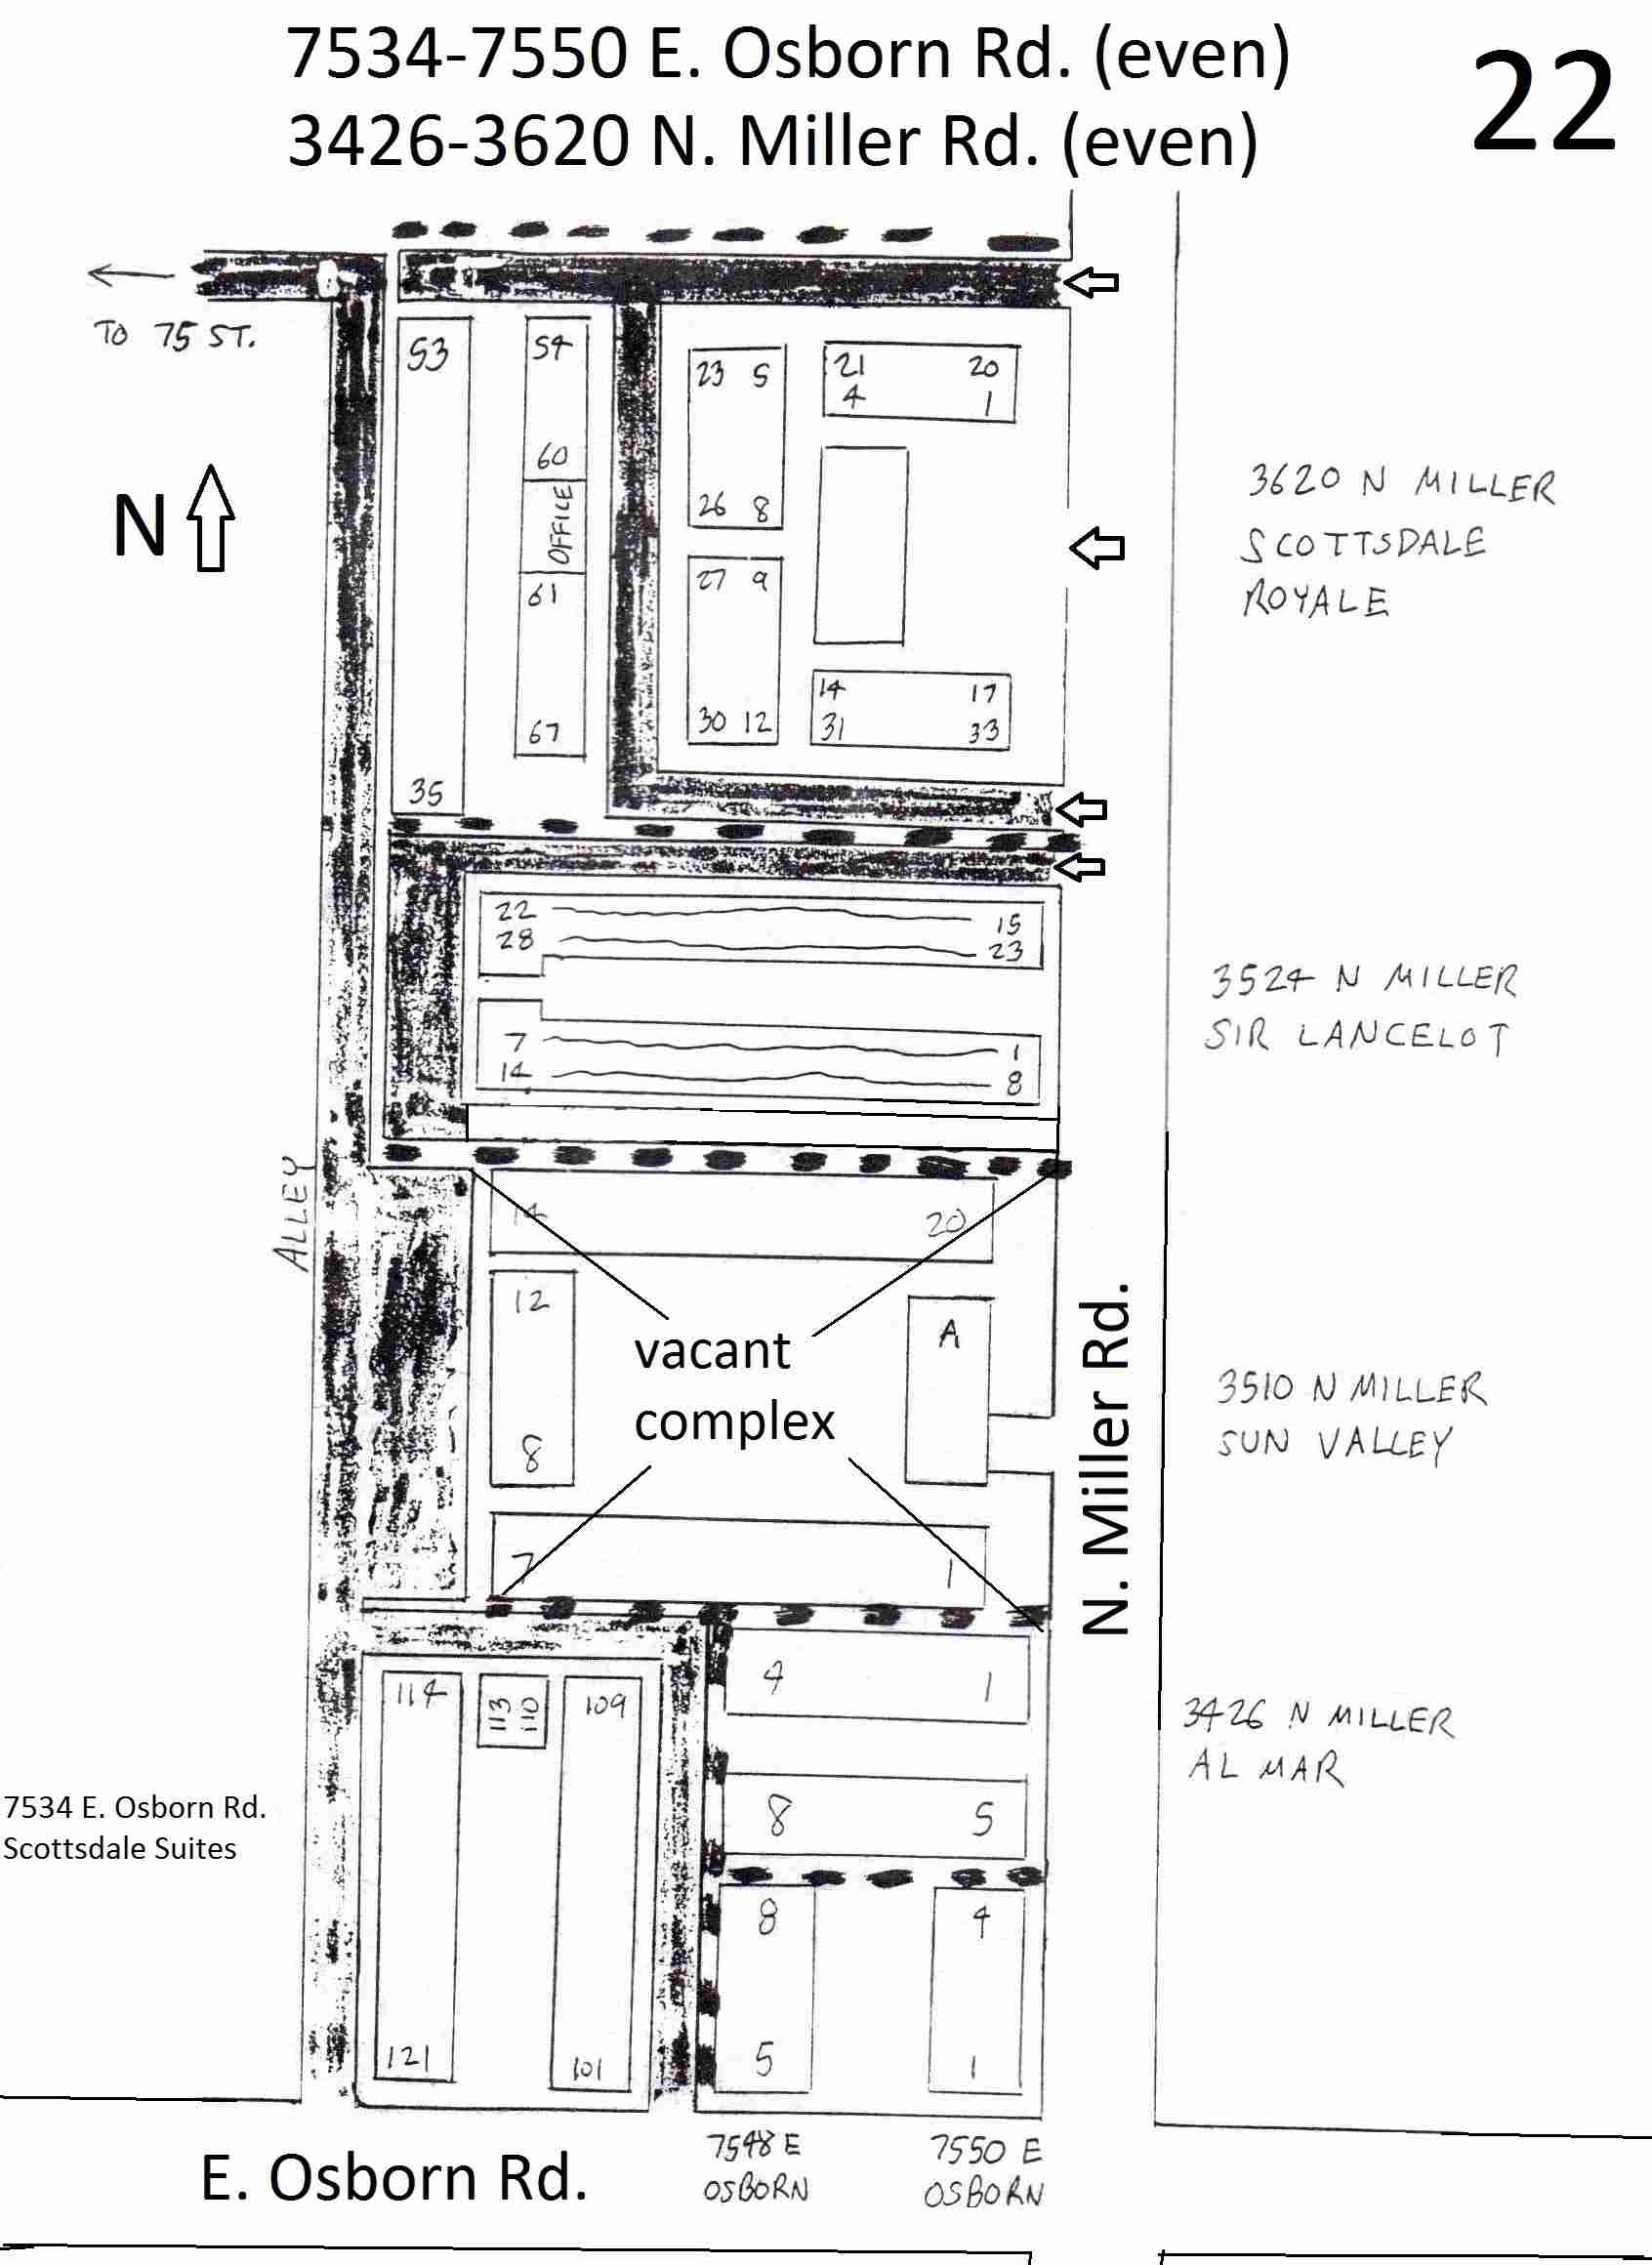 7534-7550 E. Osborn Rd. (even)
3426-3620 N. Miller Rd. (even)
22
TO 75 ST.
N
53
54
60
OFFICE
61
67
35
23 5
26 8
27 9
30 12
21 20
4 1
14 17
31 33
3620 N MILLER
SCOTTSDALE
ROYALE
22 15
28 23
7 1
14 8
3524 N MILLER
SIR LANCELOT
ALLEY
14 20
12
8
A
vacant
complex
7 1
N. Miller Rd.
3510 N MILLER
SUN VALLEY
4 1
8 5
3426 N MILLER
AL MAR
114
113
110
109
121
101
7534 E. Osborn Rd.
Scottsdale Suites
8
5
4
1
7548 E
OSBORN
7550 E
OSBORN
E. Osborn Rd.